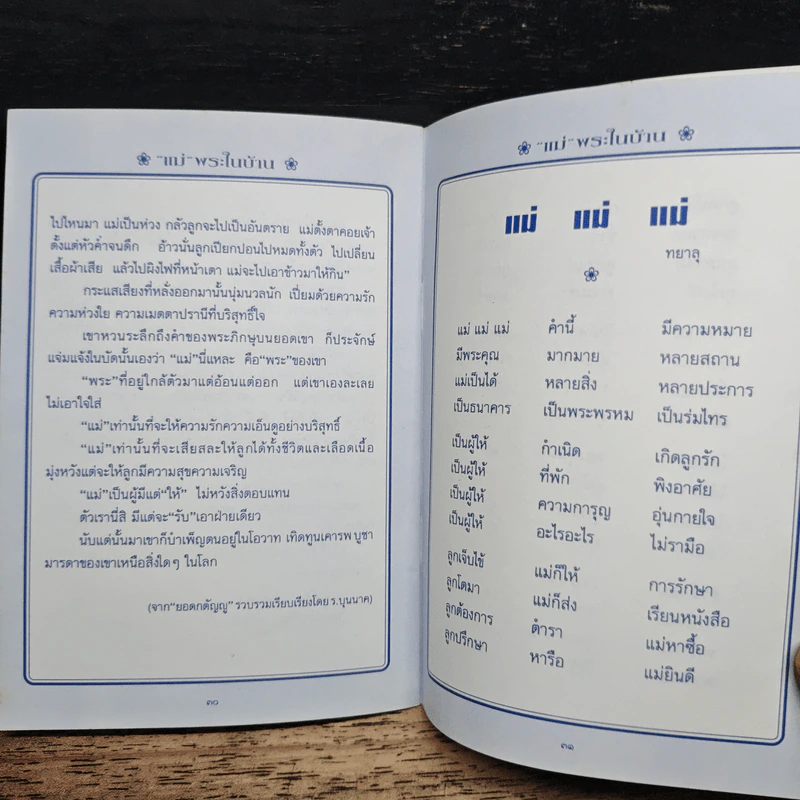 "แม่" พระในบ้าน
ไปไหนมา แม่เป็นห่วง กลัวลูกจะไปเป็นอันตราย แม่ตั้งตาคอยเจ้า
ตั้งแต่หัวค่ำจนดึก อ้าวนั่นลูกเปียกปอนไปหมดทั้งตัว ไปเปลี่ยน
เสื้อผ้าเสีย แล้วไปผิงไฟที่หน้าเตา แม่จะไปเอาข้าวมาให้กิน"
กระแสเสียงที่หลั่งออกมานั้นนุ่มนวลนัก เปี่ยมด้วยความรัก
ความห่วงใย ความเมตตาปรานีที่บริสุทธิ์ใจ
เขาหวนระลึกถึงคำของพระภิกษุบนยอดเขา ก็ประจักษ์
แจ่มแจ้งในบัดนั้นเองว่า "แม่"นี่แหละ คือ"พระ"ของเขา
"พระ"ที่อยู่ใกล้ตัวมาแต่อ้อนแต่ออก แต่เขาเองละเลย
ไม่เอาใจใส่
"แม่"เท่านั้นที่จะให้ความรักความเอ็นดูอย่างบริสุทธิ์
"แม่"เท่านั้นที่จะเสียสละให้ลูกได้ทั้งชีวิตและเลือดเนื้อ
มุ่งหวังแต่จะให้ลูกมีความสุขความเจริญ
"แม่"เป็นผู้มีแต่"ให้" ไม่หวังสิ่งตอบแทน
ตัวเรานี่สิ มีแต่จะ"รับ"เอาฝ่ายเดียว
นับแต่นั้นมาเขาก็บำเพ็ญตนอยู่ในโอวาท เทิดทูนเคารพ บูชา
มารดาของเขาเหนือสิ่งใดๆ ในโลก
(จาก"ยอดกตัญญู" รวบรวมเรียบเรียงโดย ร.บุนนาค)
๓๐
"แม่" พระในบ้าน
แม่ แม่ แม่
ทยาลุ
แม่ แม่ แม่ คำนี้ มีความหมาย
มีพระคุณ มากมาย หลายสถาน
แม่เป็นได้ หลายสิ่ง หลายประการ
เป็นธนาคาร เป็นพระพรหม เป็นร่มไทร
เป็นผู้ให้ กำเนิด เกิดลูกรัก
เป็นผู้ให้ ที่พัก พิงอาศัย
เป็นผู้ให้ ความการุญ อุ่นกายใจ
เป็นผู้ให้ อะไรอะไร ไม่รามือ
ลูกเจ็บไข้ แม่ก็ให้ การรักษา
ลูกโตมา แม่ก็ส่ง เรียนหนังสือ
ลูกต้องการ ตำรา แม่หาซื้อ
ลูกปรึกษา หารือ แม่ยินดี
๓๑